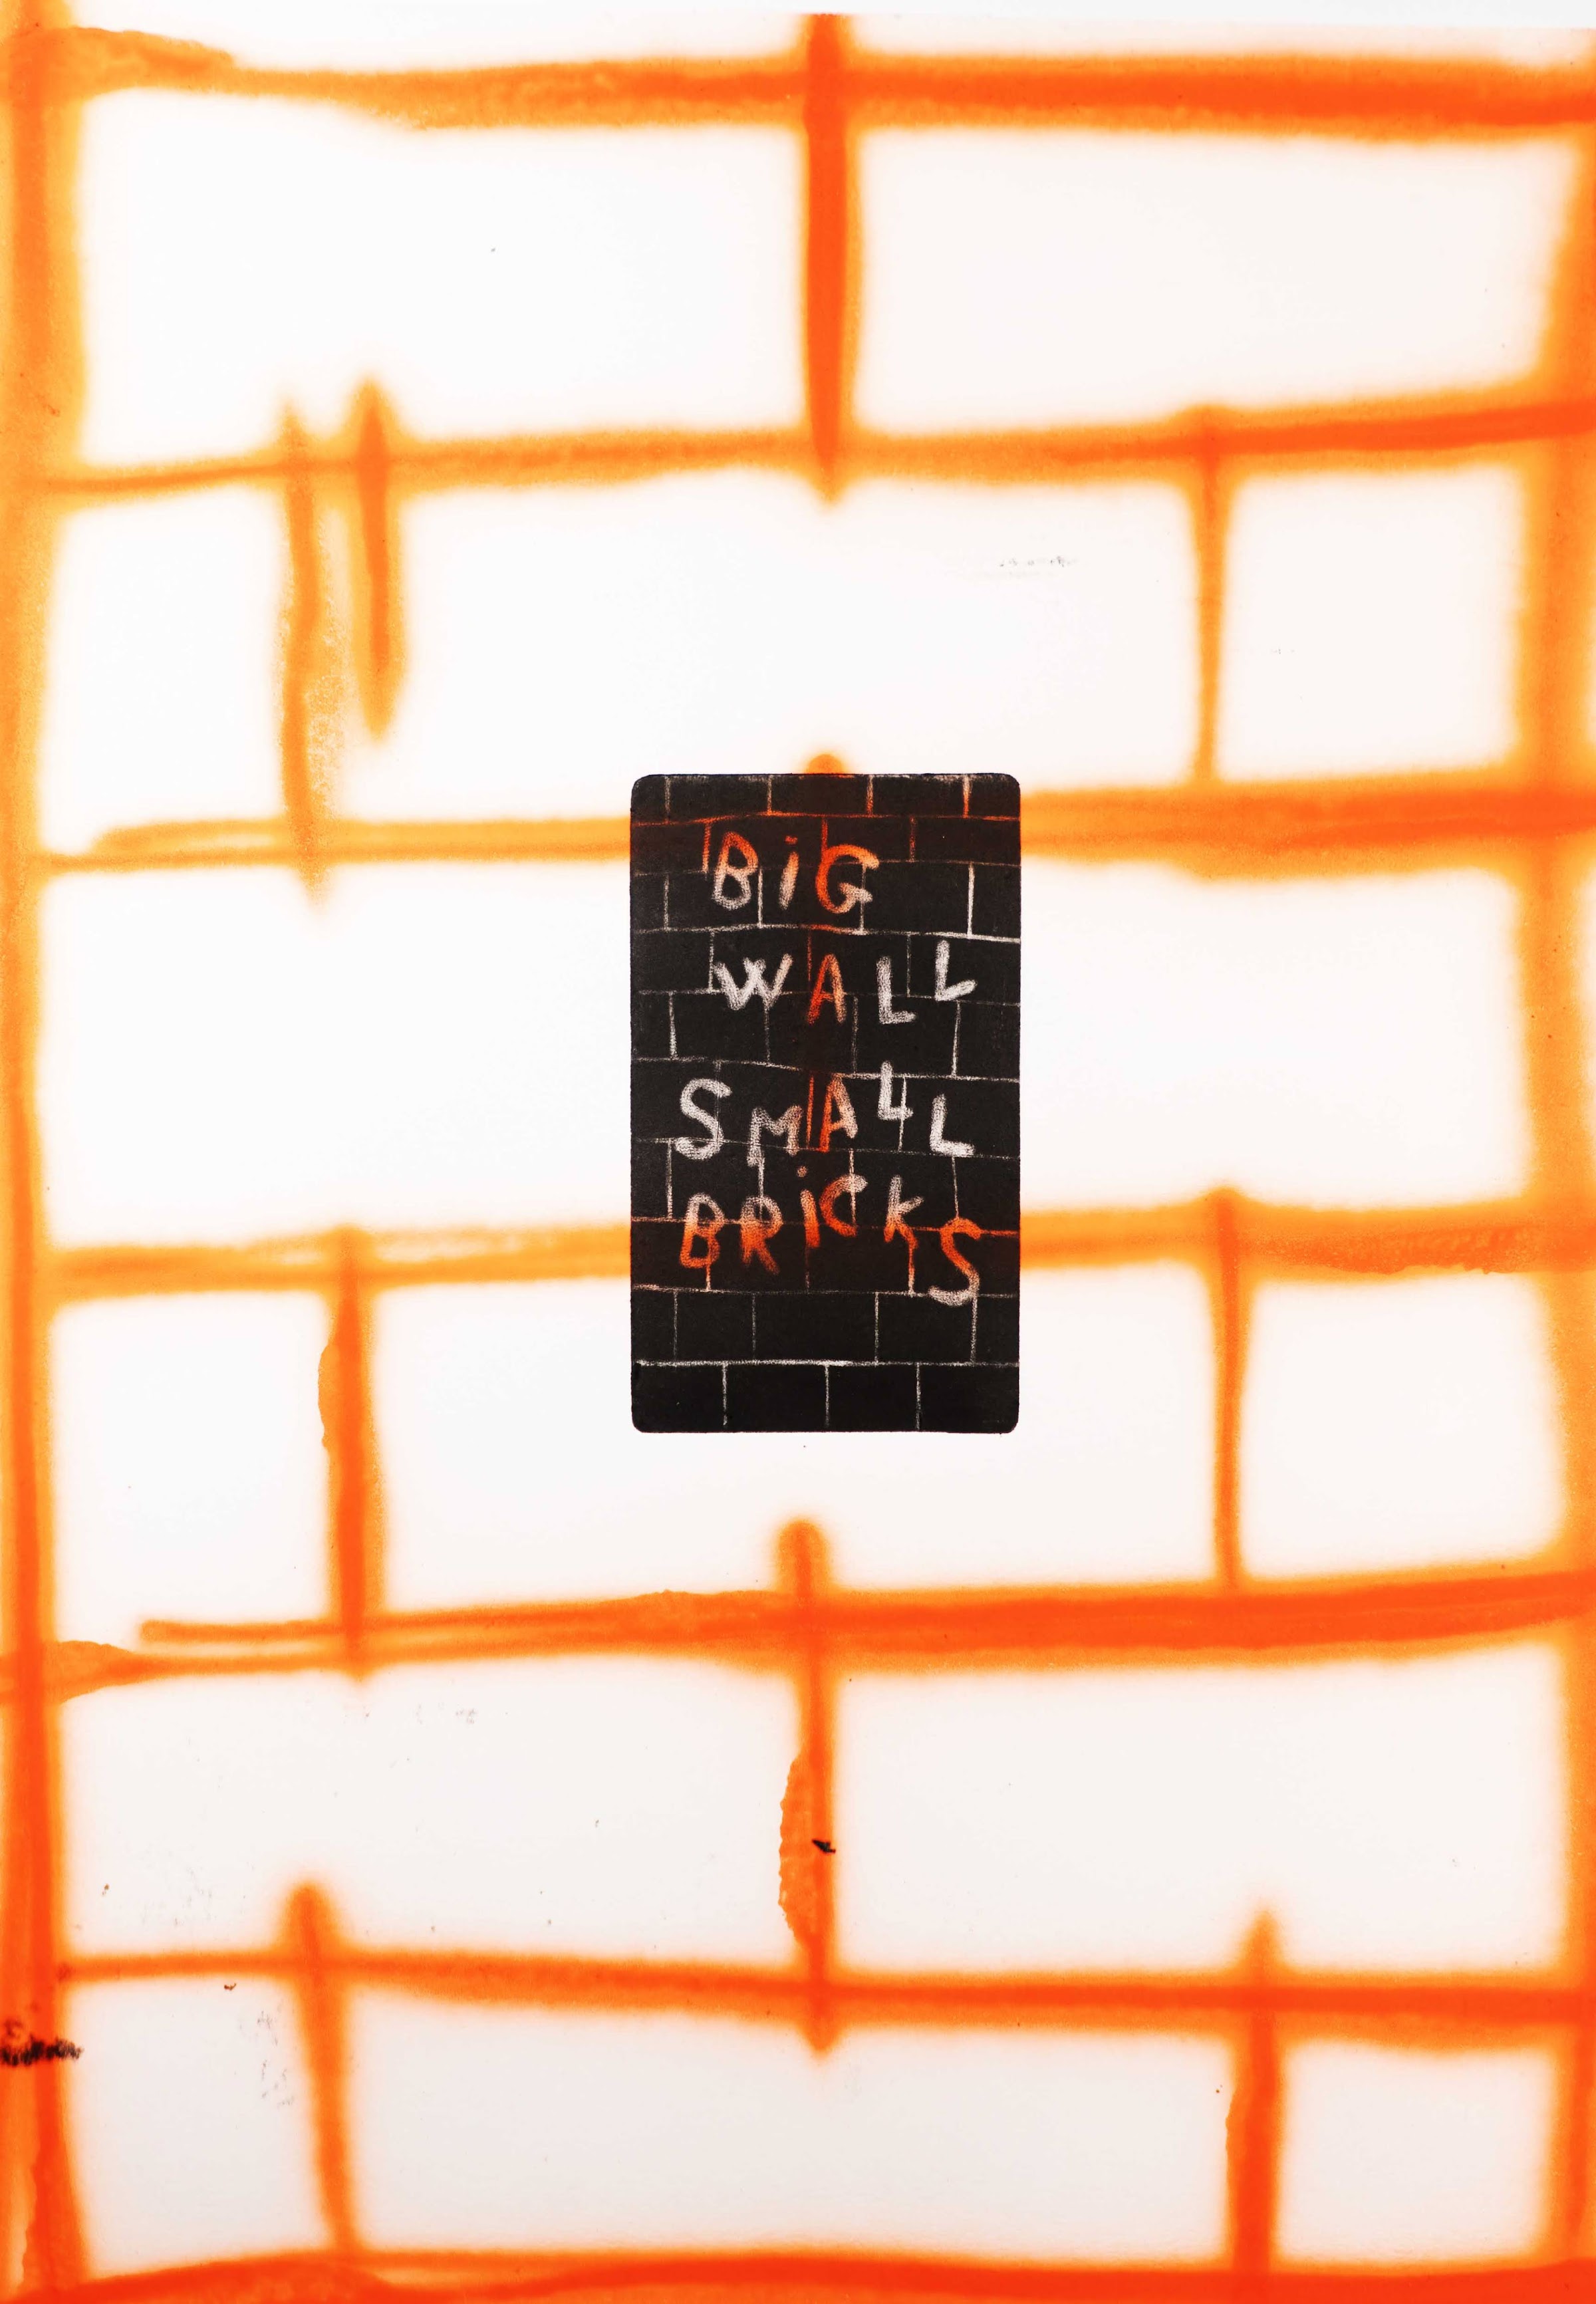 BiG
WALL
SMALL
BRiCKS